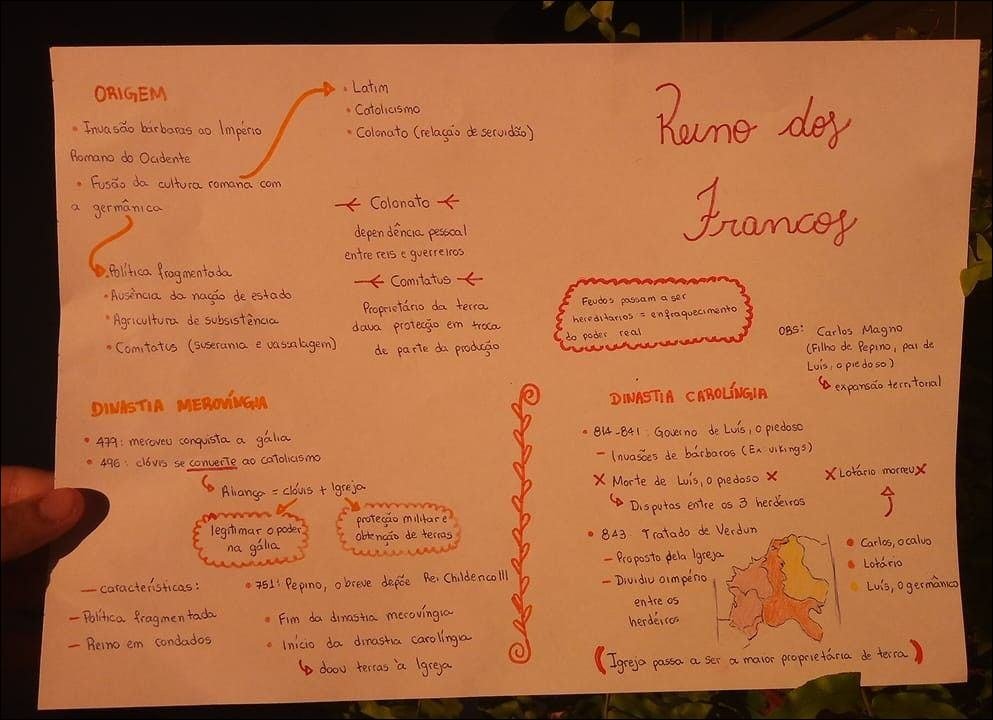 Reino dos
Francos
ORIGEM
• Invasão bárbaras ao Império
Romano do Ocidente
• Fusão da cultura romana com
a germânica
• Latim
• Catolicismo
• Colonato (relação de servidão)
• Política fragmentada
• Ausência da nação de estado
• Agricultura de subsistência
• Comitatus (suserania e vassalagem)
Colonato
dependência pessoal
entre reis e guerreiros
Comitatus
Proprietário da terra
dava proteção em troca
de parte da produção
Feudos passam a ser
hereditários = enfraquecimento
do poder real
OBS: Carlos Magno
(Filho de Pepino, pai de
Luís, o piedoso)
expansão territorial
DINASTIA MEROVÍNGIA
• 479: meroveu conquista a gália
• 496: clóvis se converte ao catolicismo
Aliança = clóvis + Igreja
legitimar o poder
na gália
proteção militar e
obtenção de terras
— características:
— Política fragmentada
— Reino em condados
• 751: Pepino, o breve depõe Rei Childerico III
• Fim da dinastia merovíngia
• Início da dinastia carolíngia
doou terras à Igreja
DINASTIA CAROLÍNGIA
• 814-841: Governo de Luís, o piedoso
— Invasões de bárbaros (Ex vikings)
X Morte de Luís, o piedoso X
Disputas entre os 3 herdeiros
X Lotário morreu X
• 843 Tratado de Verdun
— Proposto pela Igreja
— Dividiu o império
entre os
herdeiros
• Carlos, o calvo
• Lotário
• Luís, o germânico
(Igreja passa a ser a maior proprietária de terra)